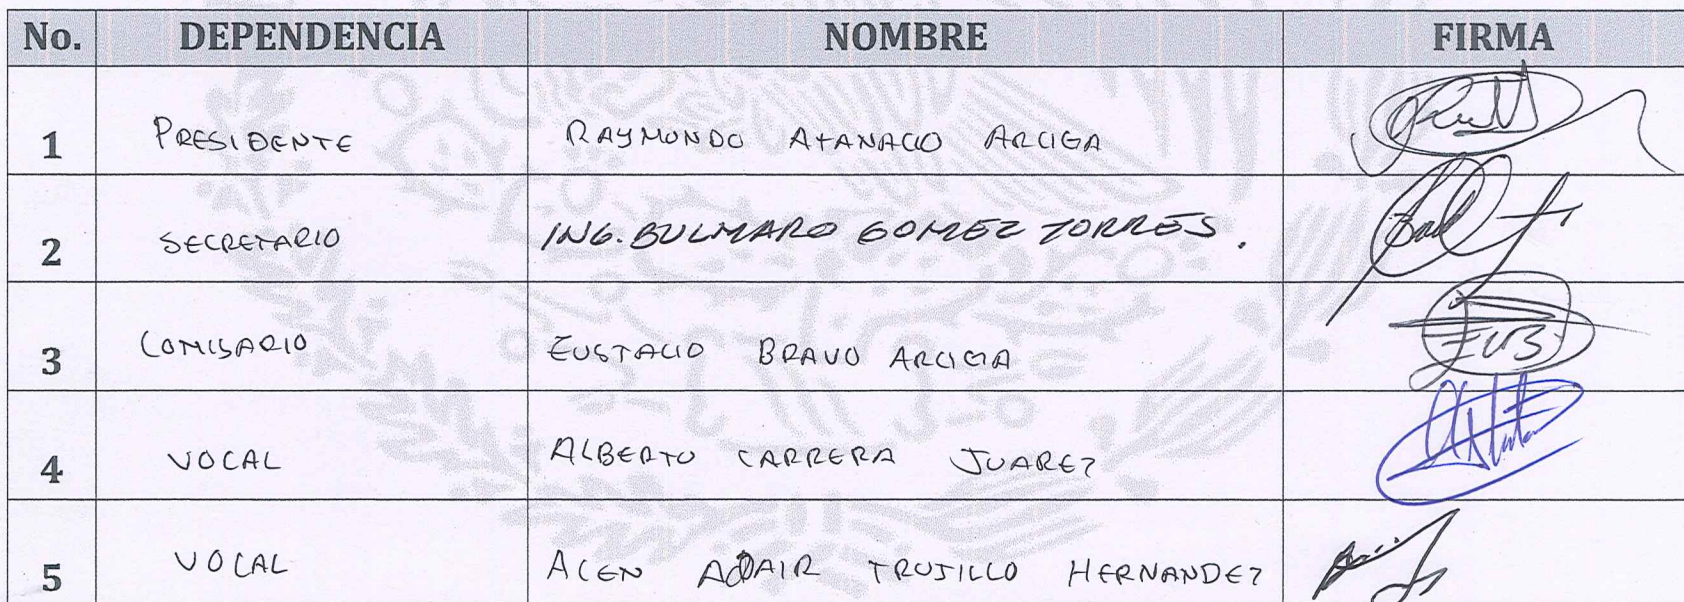 No. DEPENDENCIA NOMBRE FIRMA
1 PRESIDENTE RAYMUNDO ATANACIO ARCIGA
2 SECRETARIO ING. BULMARO GOMEZ TORRES.
3 COMISARIO EUSTACIO BRAVO ARCIGA EVB
4 VOCAL ALBERTO CARRERA JUAREZ
5 VOCAL ACEN ADAIR TRUJILLO HERNANDEZ